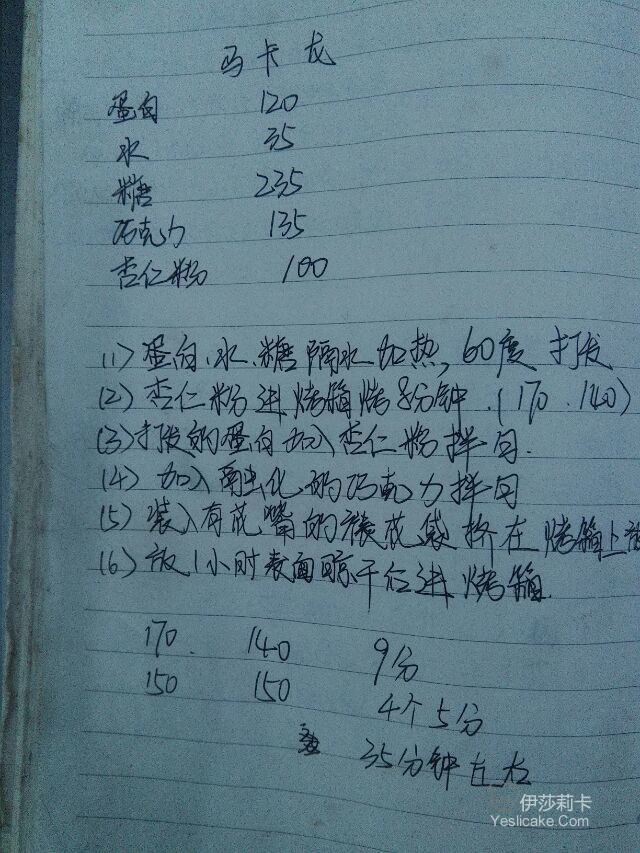 马卡龙
蛋白 120
水 35
糖 235
巧克力 135
杏仁粉 100
(1) 蛋白、水、糖隔水加热, 60度 打发
(2) 杏仁粉进烤箱烤8分钟.(170.140)
(3) 打发的蛋白加入杏仁粉拌匀.
(4) 加入融化的巧克力拌匀
(5) 装入有花嘴的裱花袋挤在烤箱上
(6) 放1小时表面晾干后进烤箱.
170. 140 9分
150 150 4个5分
35分钟左右
伊莎莉卡
Yeslicake.Com